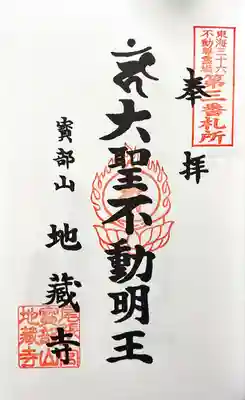 東海三十六
不動尊霊場
第三番札所
奉拝
大聖不動明王
寳部山 地蔵寺